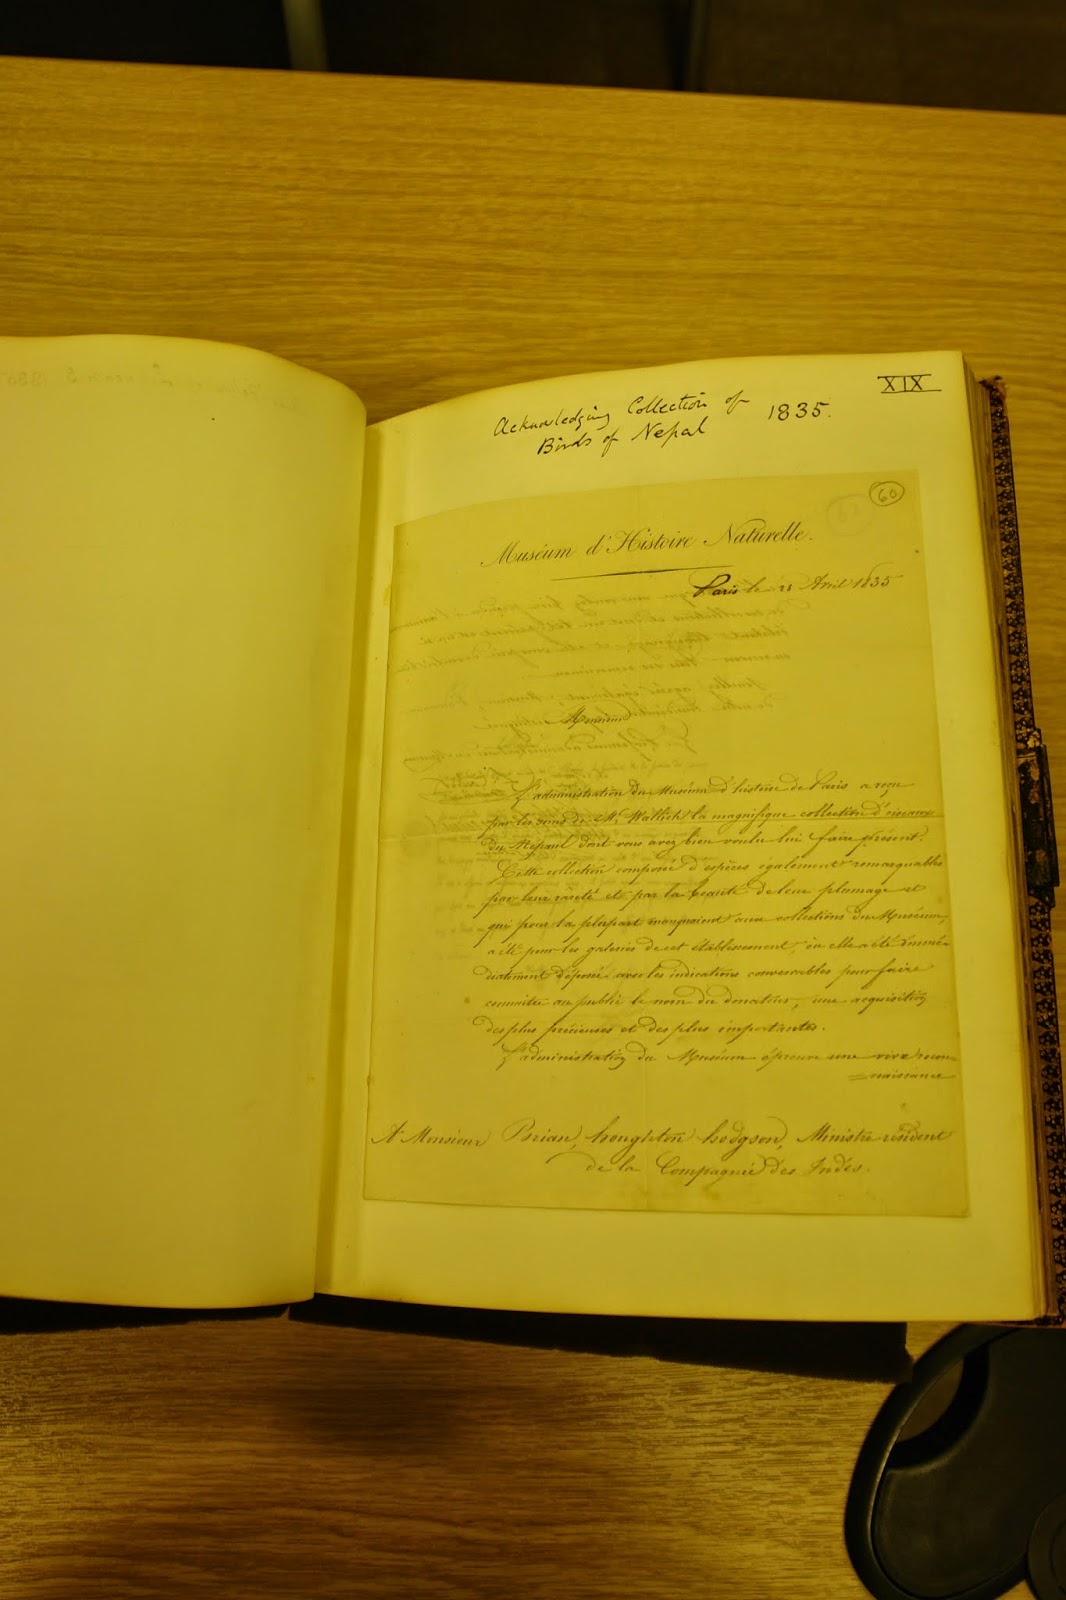 XIX
Acknowledging Collection of 1835.
Birds of Nepal
60
Muséum d'Histoire Naturelle.
Paris le Avril 1835
Monsieur
L'administration du Muséum d'histoire de Paris a reçu
par les de Mr. Wallich la magnifique collection d'oiseaux
du Népaul dont vous avez bien voulu lui faire présent.
Cette collection composée d'espèces également remarquables
par leur rareté et par la beauté de leur plumage et
qui pour la plupart manquaient aux collections du Muséum,
a été pour les galeries de cet établissement, où elle a été immé-
diatement déposée avec les indications convenables pour faire
connaitre au public le nom du donateur, une acquisition
des plus précieuses et des plus importantes.
L'administration du Muséum éprouve une vive recon-
naissance
A Monsieur Brian, houghton hodgson, Ministre résident
de la Compagnie des Indes.